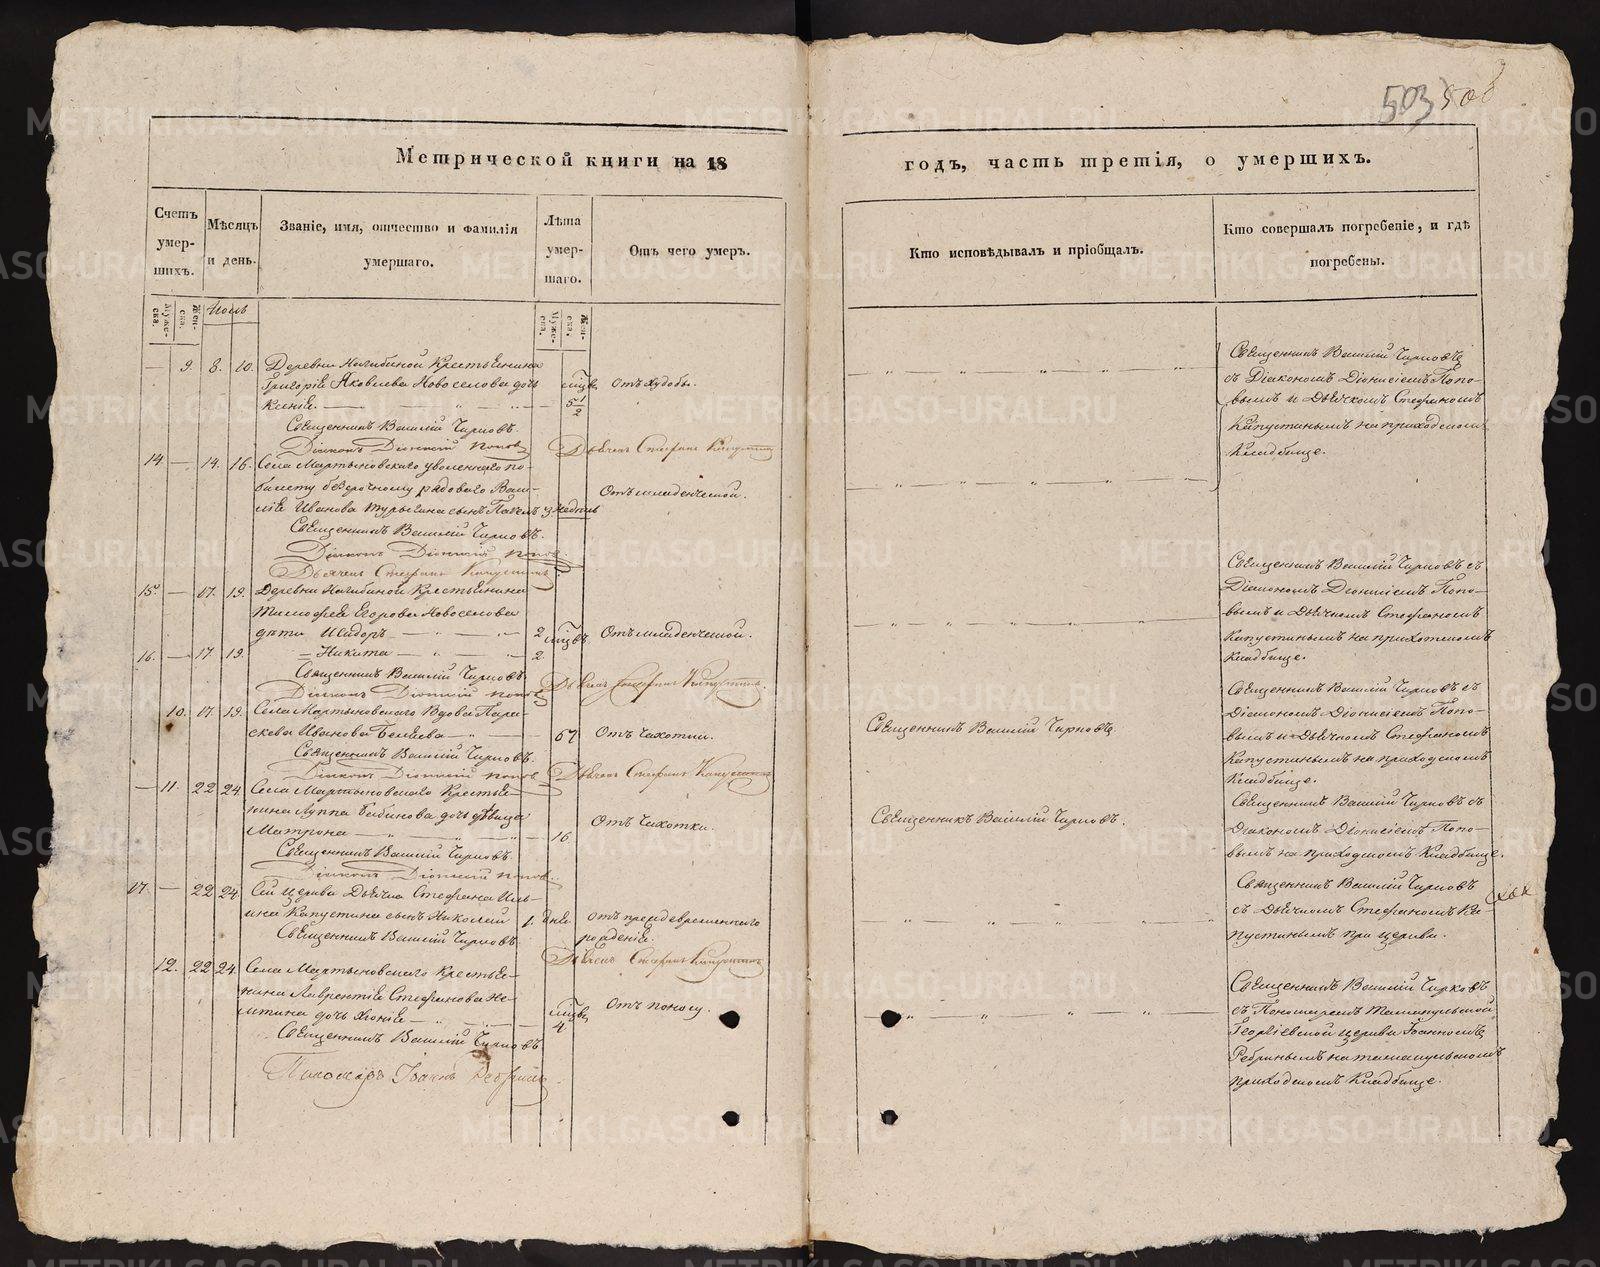 503 500
Метрической книги на 18 годъ, часть третія, о умершихъ.
Счетъ умер-шихъ.
Мѣсяцъ и день.
Званіе, имя, отчество и фамилія умершаго.
Лѣта умер-шаго.
Отъ чего умеръ.
Кто исповѣдывалъ и пріобщалъ.
Кто совершалъ погребеніе, и гдѣ погребены.
Муже-ска.
Жен-ска.
Муже-ска.
Жен-ска.
— 9. 8. 10. Деревни Нагибиной Крестьянина
Григорія Яковлева Новоселова дочь
Ксенія.
5 1/2
Отъ худобы.
Священникъ Василій Чирковъ
съ Діакономъ Діонисіемъ Попо-
вымъ и Дьячкомъ Стефаномъ
Капустинымъ на приходскомъ
Кладбище.
Священникъ Василій Чирковъ.
Діаконъ Діонисій Поповъ
Дьячекъ Стефанъ Капустинъ
14. — 14. 16. Села Мартыновскаго уволеннаго по
билету безсрочному рядоваго Васи-
лія Иванова сынъ Павелъ 3 недель
Отъ младенческой.
Священникъ Василій Чирковъ.
Діаконъ Діонисій Поповъ.
Дьячекъ Стефанъ Капустинъ
15. — 17. 19. Деревни Нагибиной Крестьянина
Тимофея Егорова Новоселова
дѣти Исидоръ 2
Отъ младенческой.
16. — 17. 19. Никита 2.
Священникъ Василій Чирковъ съ
Діакономъ Діонисіемъ Попо-
вымъ и Дьячкомъ Стефаномъ
Капустинымъ на приходскомъ
Кладбище.
Священникъ Василій Чирковъ
Діаконъ Діонисій Поповъ
Дьячекъ Стефанъ Капустинъ.
10. 17. 19. Села Мартыновскаго Вдова Пара-
скева Иванова Беляева 67
Отъ чахотки.
Священникъ Василій Чирковъ.
Священникъ Василій Чирковъ съ
Діакономъ Діонисіемъ Попо-
вымъ и Дьячкомъ Стефаномъ
Капустинымъ на приходскомъ
Кладбище.
Священникъ Василій Чирковъ.
Діаконъ Діонисій Поповъ
Дьячекъ Стефанъ Капустинъ
— 11. 22 24. Села Мартыновскаго Крестья-
нина Луппа Бабинова дочь девица
Матрона 16
Отъ Чахотки.
Священникъ Василій Чирковъ.
Священникъ Василій Чирковъ съ
Діакономъ Діонисіемъ Попо-
вымъ на приходскомъ Кладбище.
Священникъ Василій Чирковъ
Діаконъ Діонисій Поповъ.
17. — 22 24. Сей церкви Дьячка Стефана Иль-
ина Капустина сынъ Николай 1. дня.
Отъ преждевременнаго
рожденія.
Священникъ Василій Чирковъ
съ Дьячкомъ Стефаномъ Ка-
пустинымъ при церкви.
Священникъ Василій Чирковъ.
Дьячекъ Стефанъ Капустинъ
12. 22 24. Села Мартыновскаго Крестья-
нина Лаврентія Стефанова
дочь
4
Отъ поносу.
Священникъ Василій Чирковъ
съ Пономаремъ
Георгіевской церкви Іоанномъ
Ребринымъ на
приходскомъ Кладбище.
Священникъ Василій Чирковъ.
Пономарь Іоаннъ Ребринъ.